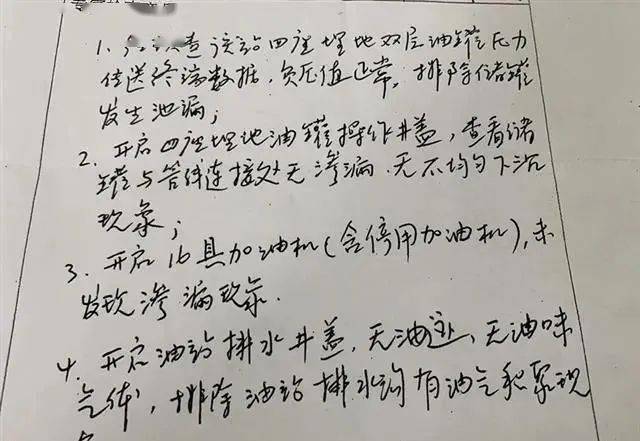 1、查该站四座埋地双层油罐压力
传送终端数据，负压值正常，排除储罐
发生泄漏；
2、开启四座埋地油罐操作井盖，查看储
罐与管线连接处无渗漏、无不均匀下沉
现象；
3、开启16具加油机(含停用加油机)，未
发现渗漏现象.
4、开启油站排水井盖，无油迹、无油味
气体，排除油站排水沟有油气积聚现